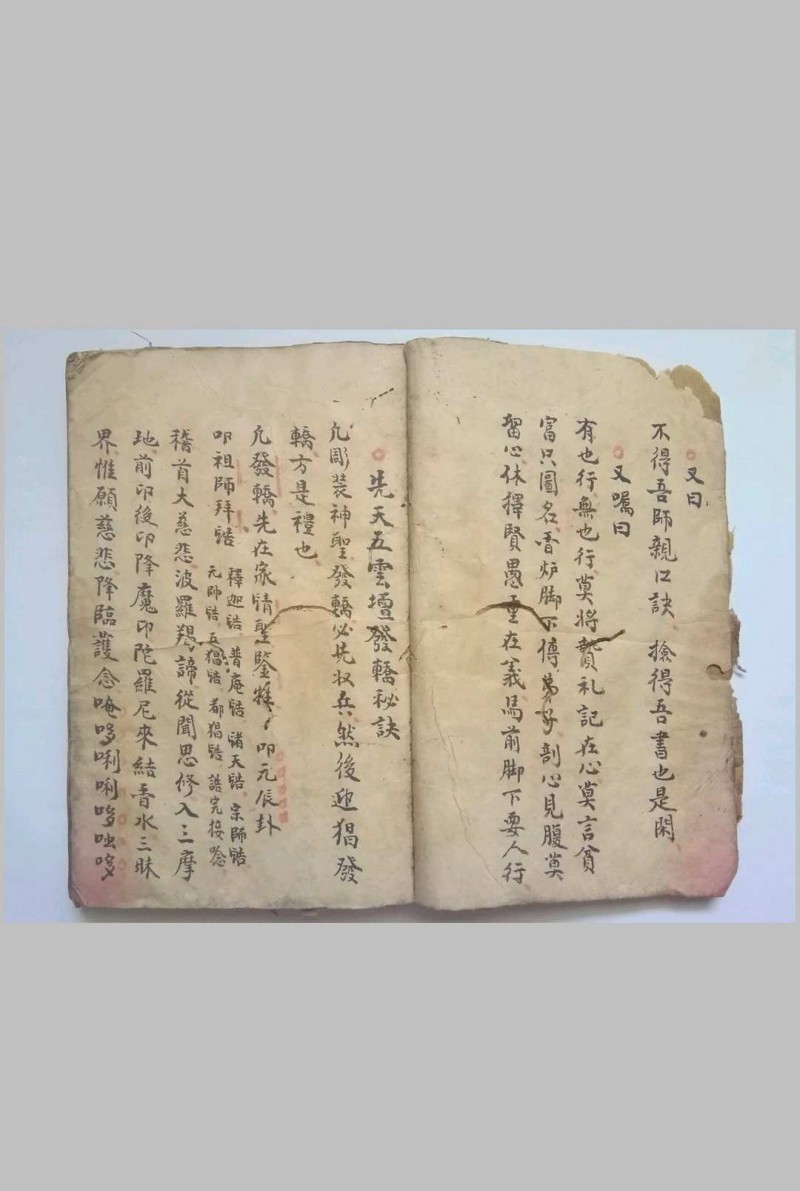 又曰
不得吾師親口訣 搶得吾書也是閑
又嘱曰
有也行無也行莫將贄礼記在心莫言貧
富只圖名香炉脚下傳弟子剖心見腹莫
留心休擇賢愚重在義馬前脚下要人行
先天五雲壇發轎秘訣
凡彫装神聖發轎必先收兵然後迎猖發
轎方是禮也
凡發轎先在家情聖鑒推叩元辰卦
叩祖師拜誥 釋迦誥普庵誥諸天誥宗師誥
元帥誥五猖誥都猖誥誥完接唸
稽首大慈悲波羅揭諦從聞思修入三摩
地前印後印降魔印陀羅尼來結香水三昧
界惟願慈悲降臨護念唵哆唎唎哆吐哆